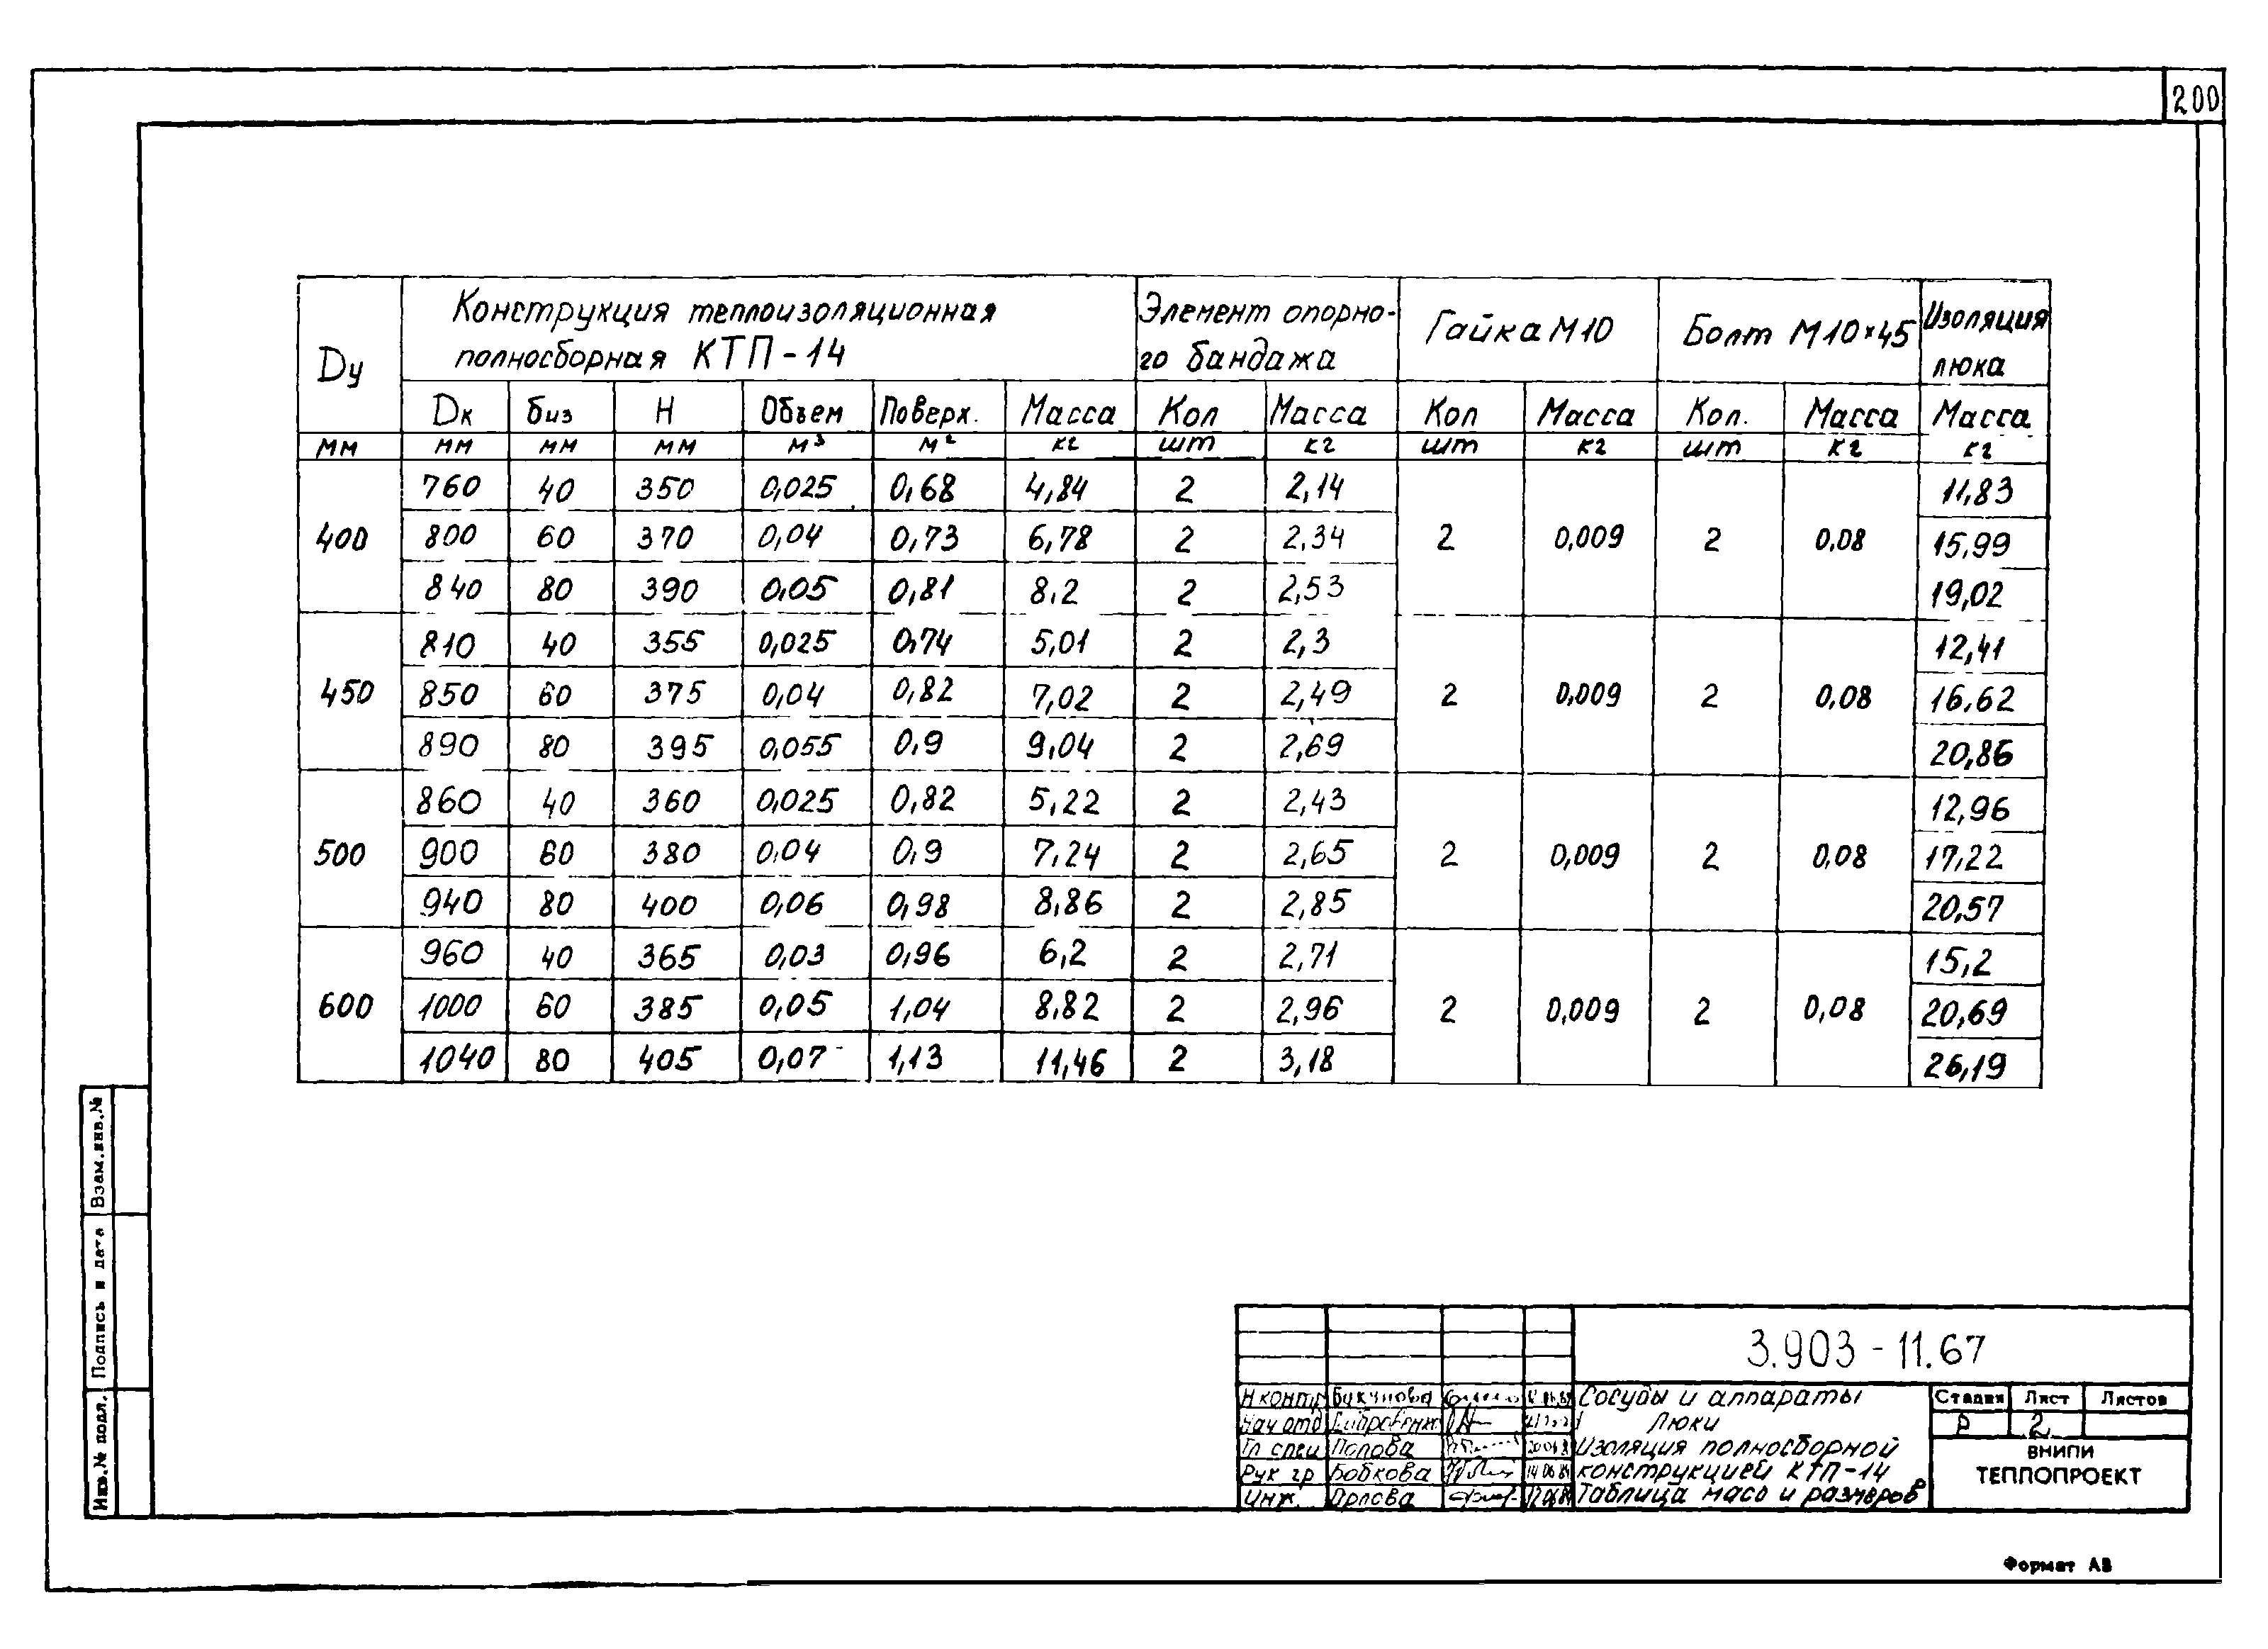 200
Dу
Конструкция теплоизоляционная
полносборная КТП-14
Элемент опорно-
го бандажа
Гайка М10
Болт М10×45
Изоляция
люка
Dк биз H Объем Поверх. Масса Кол Масса Кол Масса Кол. Масса Масса
мм мм мм мм м³ м² кг шт кг шт кг шт кг кг
400 2 0,009 2 0,08
760 40 350 0,025 0,68 4,84 2 2,14 11,83
800 60 370 0,04 0,73 6,78 2 2,34 15,99
840 80 390 0,05 0,81 8,2 2 2,53 19,02
450 2 0,009 2 0,08
810 40 355 0,025 0,74 5,01 2 2,3 12,41
850 60 375 0,04 0,82 7,02 2 2,49 16,62
890 80 395 0,055 0,9 9,04 2 2,69 20,86
500 2 0,009 2 0,08
860 40 360 0,025 0,82 5,22 2 2,43 12,96
900 60 380 0,04 0,9 7,24 2 2,65 17,22
940 80 400 0,06 0,98 8,86 2 2,85 20,57
600 2 0,009 2 0,08
960 40 365 0,03 0,96 6,2 2 2,71 15,2
1000 60 385 0,05 1,04 8,82 2 2,96 20,69
1040 80 405 0,07 1,13 11,46 2 3,18 26,19
Взам.инв.№
Подпись и дата
Инв.№ подл.
3.903-11.67
Н контр
Нач отд
Гл спец Попова
Рук гр Бобкова 14 06 84
Инж. Орлова
Сосуды и аппараты
Люки
Изоляция полносборной
конструкцией КТП-14
Таблица масс и размеров
Стадия Лист Листов
Р 2
ВНИПИ
ТЕПЛОПРОЕКТ
Формат А3